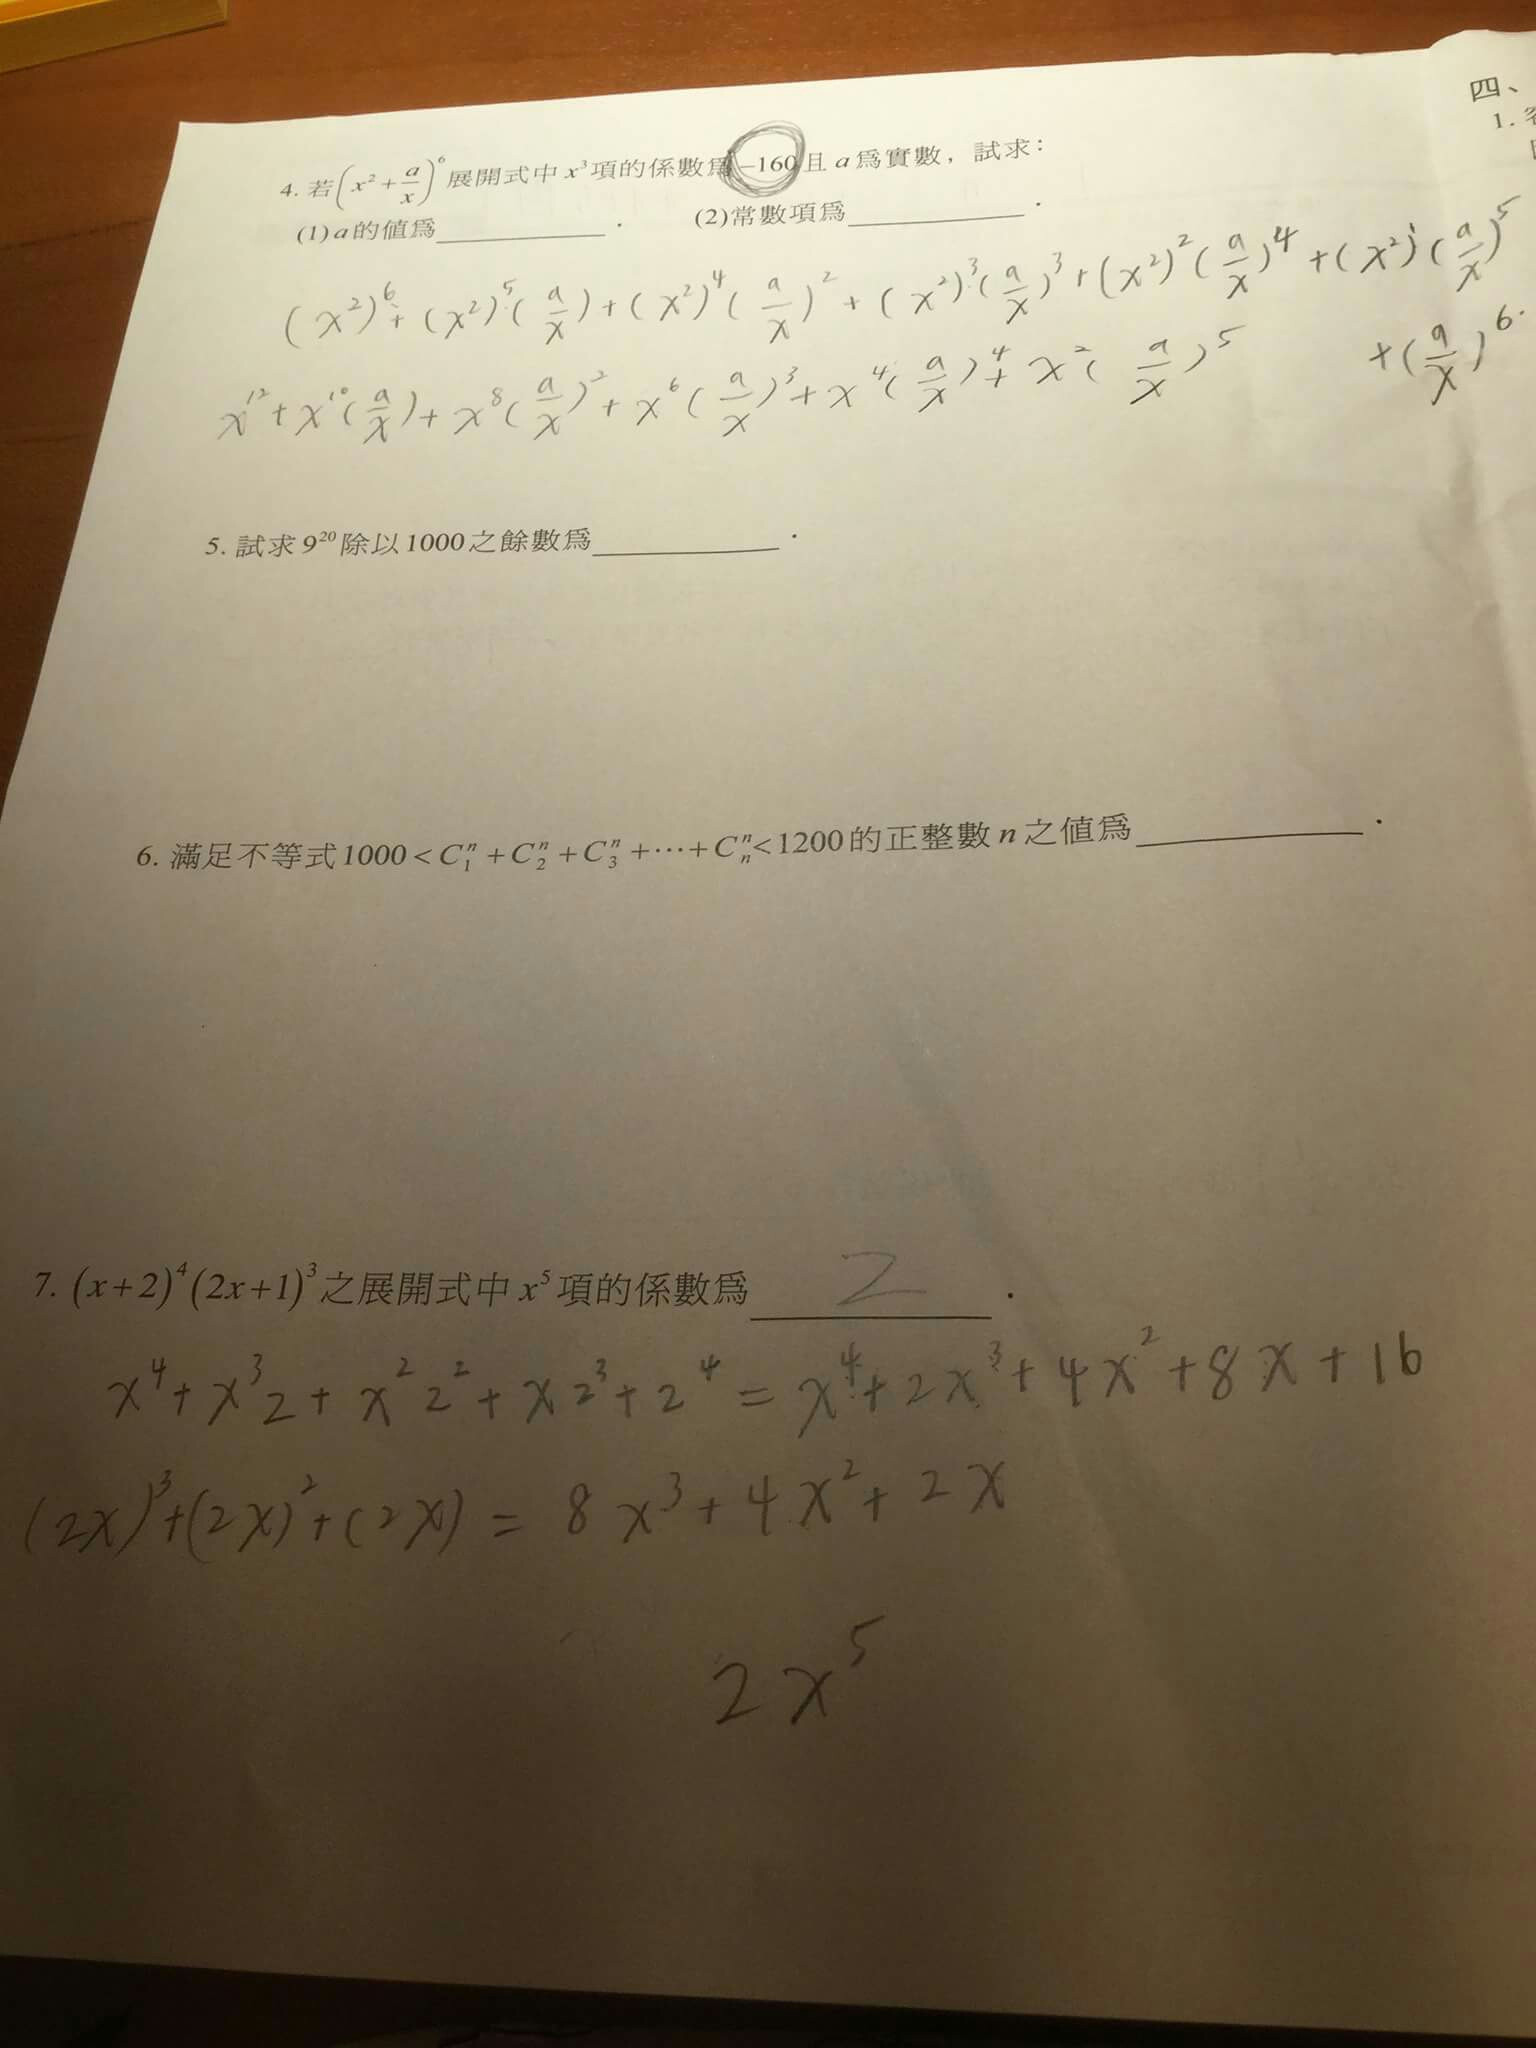 四、
1. 
4. 若(x²+a/x)⁶展開式中x³項的係數爲−160且a爲實數，試求：
(1)a的值爲__________. (2)常數項爲__________.
(x²)⁶+(x²)⁵(a/x)+(x²)⁴(a/x)²+(x²)³(a/x)³+(x²)²(a/x)⁴+(x²)¹(a/x)⁵
+(a/x)⁶.
x¹²+x¹⁰(a/x)+x⁸(a/x)²+x⁶(a/x)³+x⁴(a/x)⁴+x²(a/x)⁵
5. 試求9²⁰除以1000之餘數爲__________.
6. 滿足不等式1000<C₁ⁿ+C₂ⁿ+C₃ⁿ+⋯+Cₙⁿ<1200的正整數n之值爲__________.
7. (x+2)⁴(2x+1)³之展開式中x⁵項的係數爲 2 .
x⁴+x³2+x²2²+x2³+2⁴=x⁴+2x³+4x²+8x+16
(2x)³+(2x)²+(2x)=8x³+4x²+2x
2x⁵